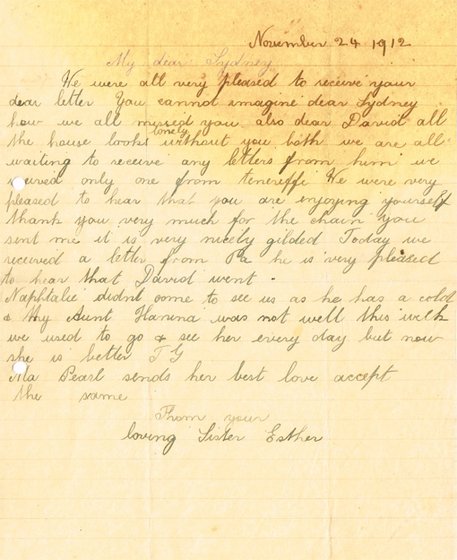 November 24 1912
My dear Sydney
We were all very pleased to receive your
dear letter You cannot imagine dear Sydney
how we all missed you also dear David all
the house looks lonely without you both we are all
waiting to receive any letters from him we
only one from teneriffi We were very
pleased to hear that you are enjoying yourself
thank you very much for the chain you
sent me it is very nicely gilded Today we
received a letter from Pa he is very pleased
to hear that David went -
Naphtalie didnt come to see us as he has a cold
& My Aunt Hanina was not well this week
we used to go & see her every day but now
she is better T G
Ma Pearl sends her best love accept
the same
From your
loving Sister Esther